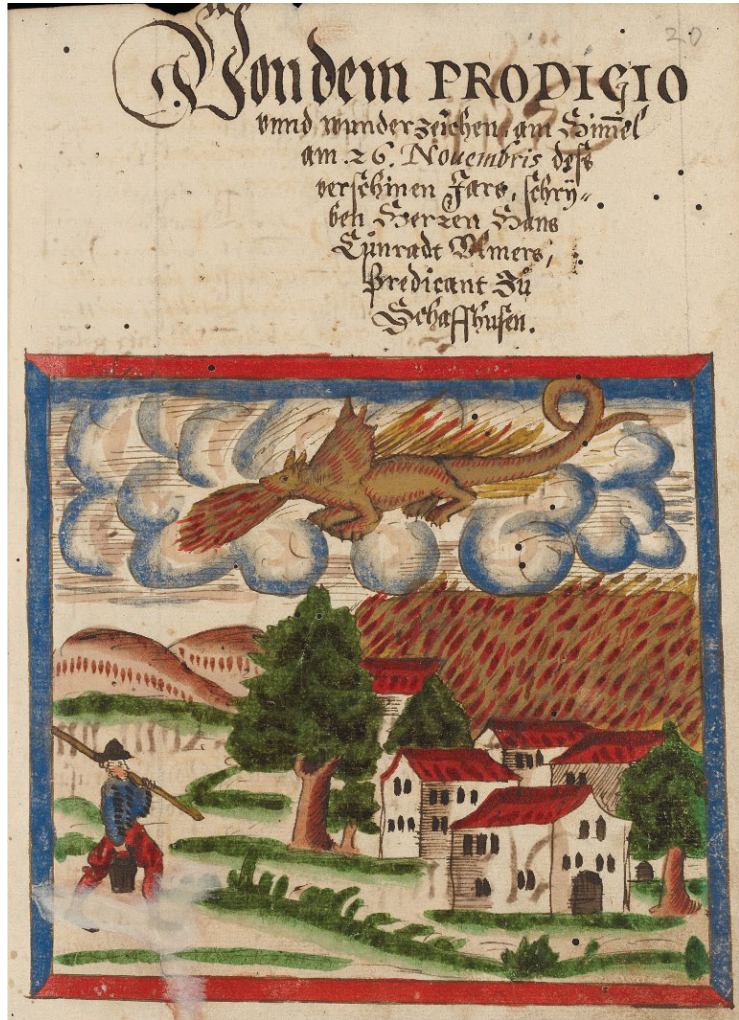 20
Von dem PRODIGIO
vnnd wunderzeichen, am Him̅el
am .26. Nouembris deſs
verſchinen Jars, ſchry=
ben Herren Hans
Cůnradt Vlmers,
Predicant Zů
Schaffhuſen.